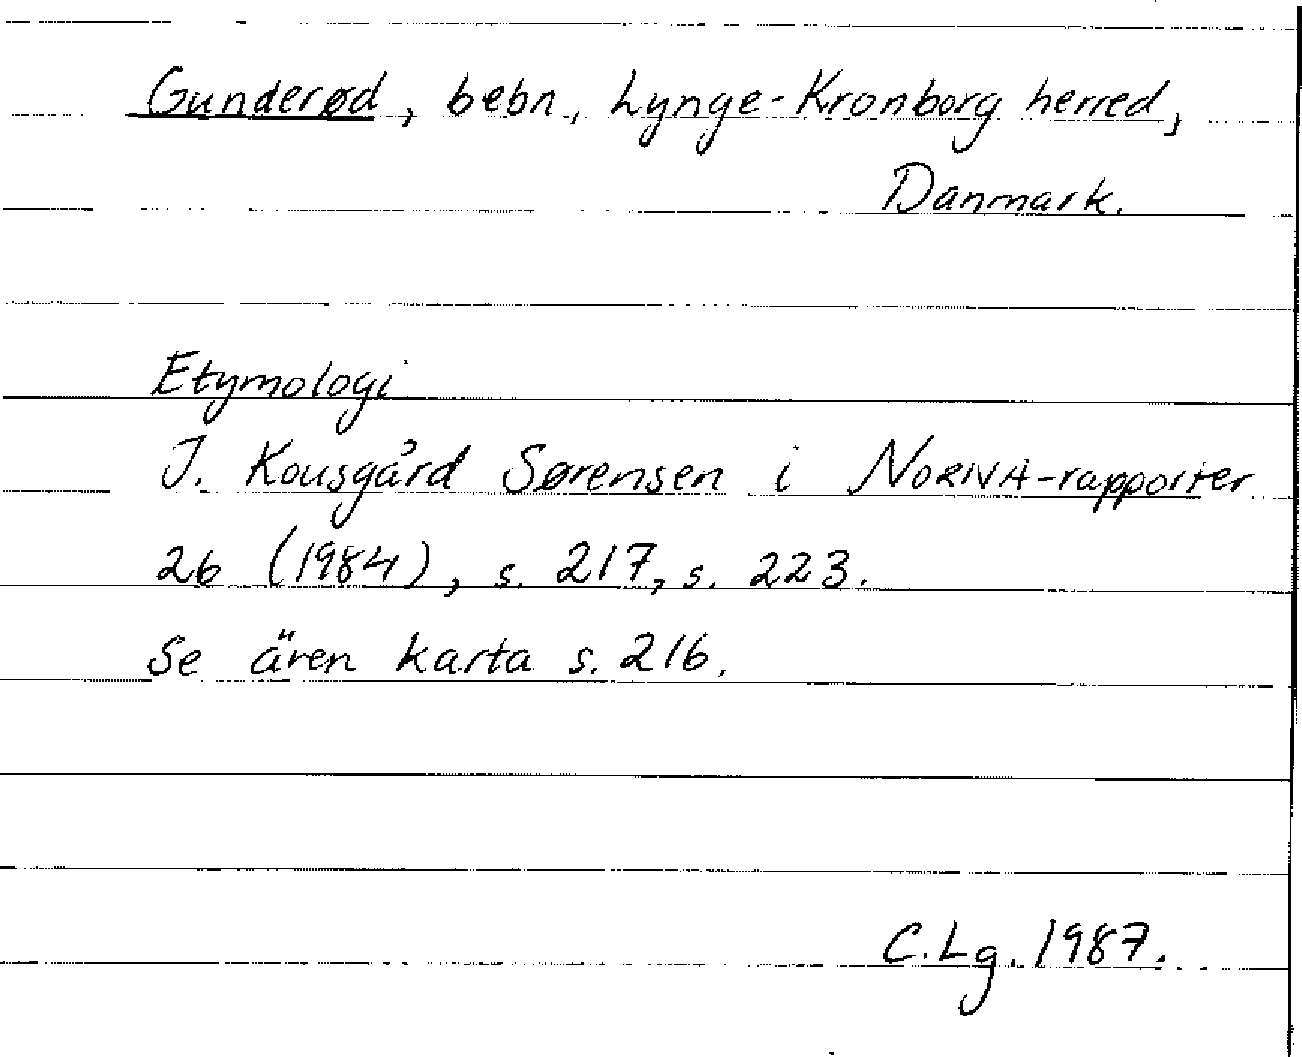 Gunderød, bebn., Lynge-Kronborg herred,
Danmark.
Etymologi
J. Kousgård Sørensen i NORNA-rapporter
26 (1984), s. 217, s. 223.
Se ären karta s. 216.
C.Lg. 1987.